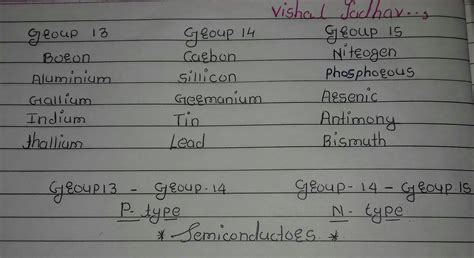 Vishal Jadhav..,
Group 13 Group 14 Group 15
Boron Carbon Nitrogen
Aluminium Sillicon Phosphorous
Gallium Germanium Arsenic
Indium Tin Antimony
Thallium Lead Bismuth
Group13 - Group-14 Group-14 - Group 15
P-type N-type
* Semiconductors *